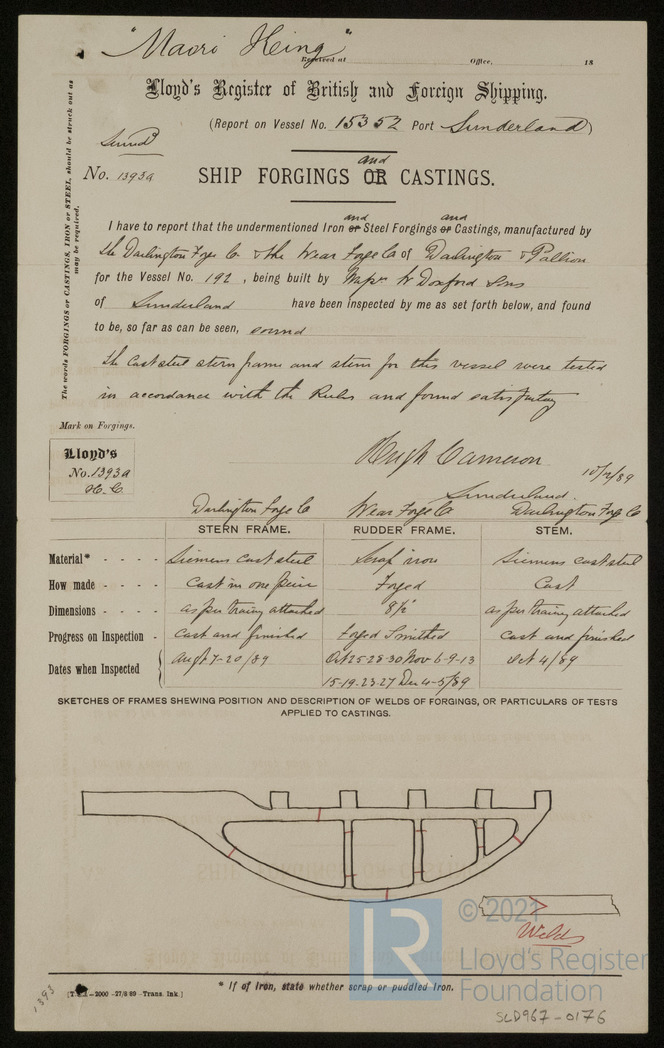 "Maori King"
Received at Office, 18
Lloyd's Register of British and Foreign Shipping.
(Report on Vessel No. 15352 Port Sunderland)
Sund
No. 1393a
and
SHIP FORGINGS OR CASTINGS.
The words FORGINGS or CASTINGS, IRON or STEEL, should be struck out as
may be required.
and and
I have to report that the undermentioned Iron or Steel Forgings or Castings, manufactured by
the Darlington Forge Co & the Wear Forge Co of Darlington & Pallion
for the Vessel No. 192, being built by Messrs W Doxford Sons
of Sunderland have been inspected by me as set forth below, and found
to be, so far as can be seen, sound
The Cast steel stern frame and stem for this vessel were tested
in accordance with the Rules and found satisfactory
Mark on Forgings.
Lloyd's
No. 1393a
H.C.
Hugh Cameron 10/12/89
Sunderland.
Darlington Forge Co Wear Forge Co Darlington Forge Co
STERN FRAME. RUDDER FRAME. STEM.
Material* - - - - Siemens cast steel Scrap iron Siemens cast steel
How made - - - - Cast in one piece Forged Cast
Dimensions - - - - as per tracing attached 8½" as per tracing attached
Progress on Inspection - Cast and finished Forged Smithed Cast and finished
Dates when Inspected Augt 7-20/89 Oct 25-28-30 Nov 6-9-13 Oct 4/89
15-19-23-27 Dec 4-5/89
SKETCHES OF FRAMES SHEWING POSITION AND DESCRIPTION OF WELDS OF FORGINGS, OR PARTICULARS OF TESTS
APPLIED TO CASTINGS.
Welds
© 2021
LR
Lloyd's Register
Foundation
* If of Iron, state whether scrap or puddled Iron.
—2000—27/8/89—Trans. Ink.]
1393
SLD967-0176